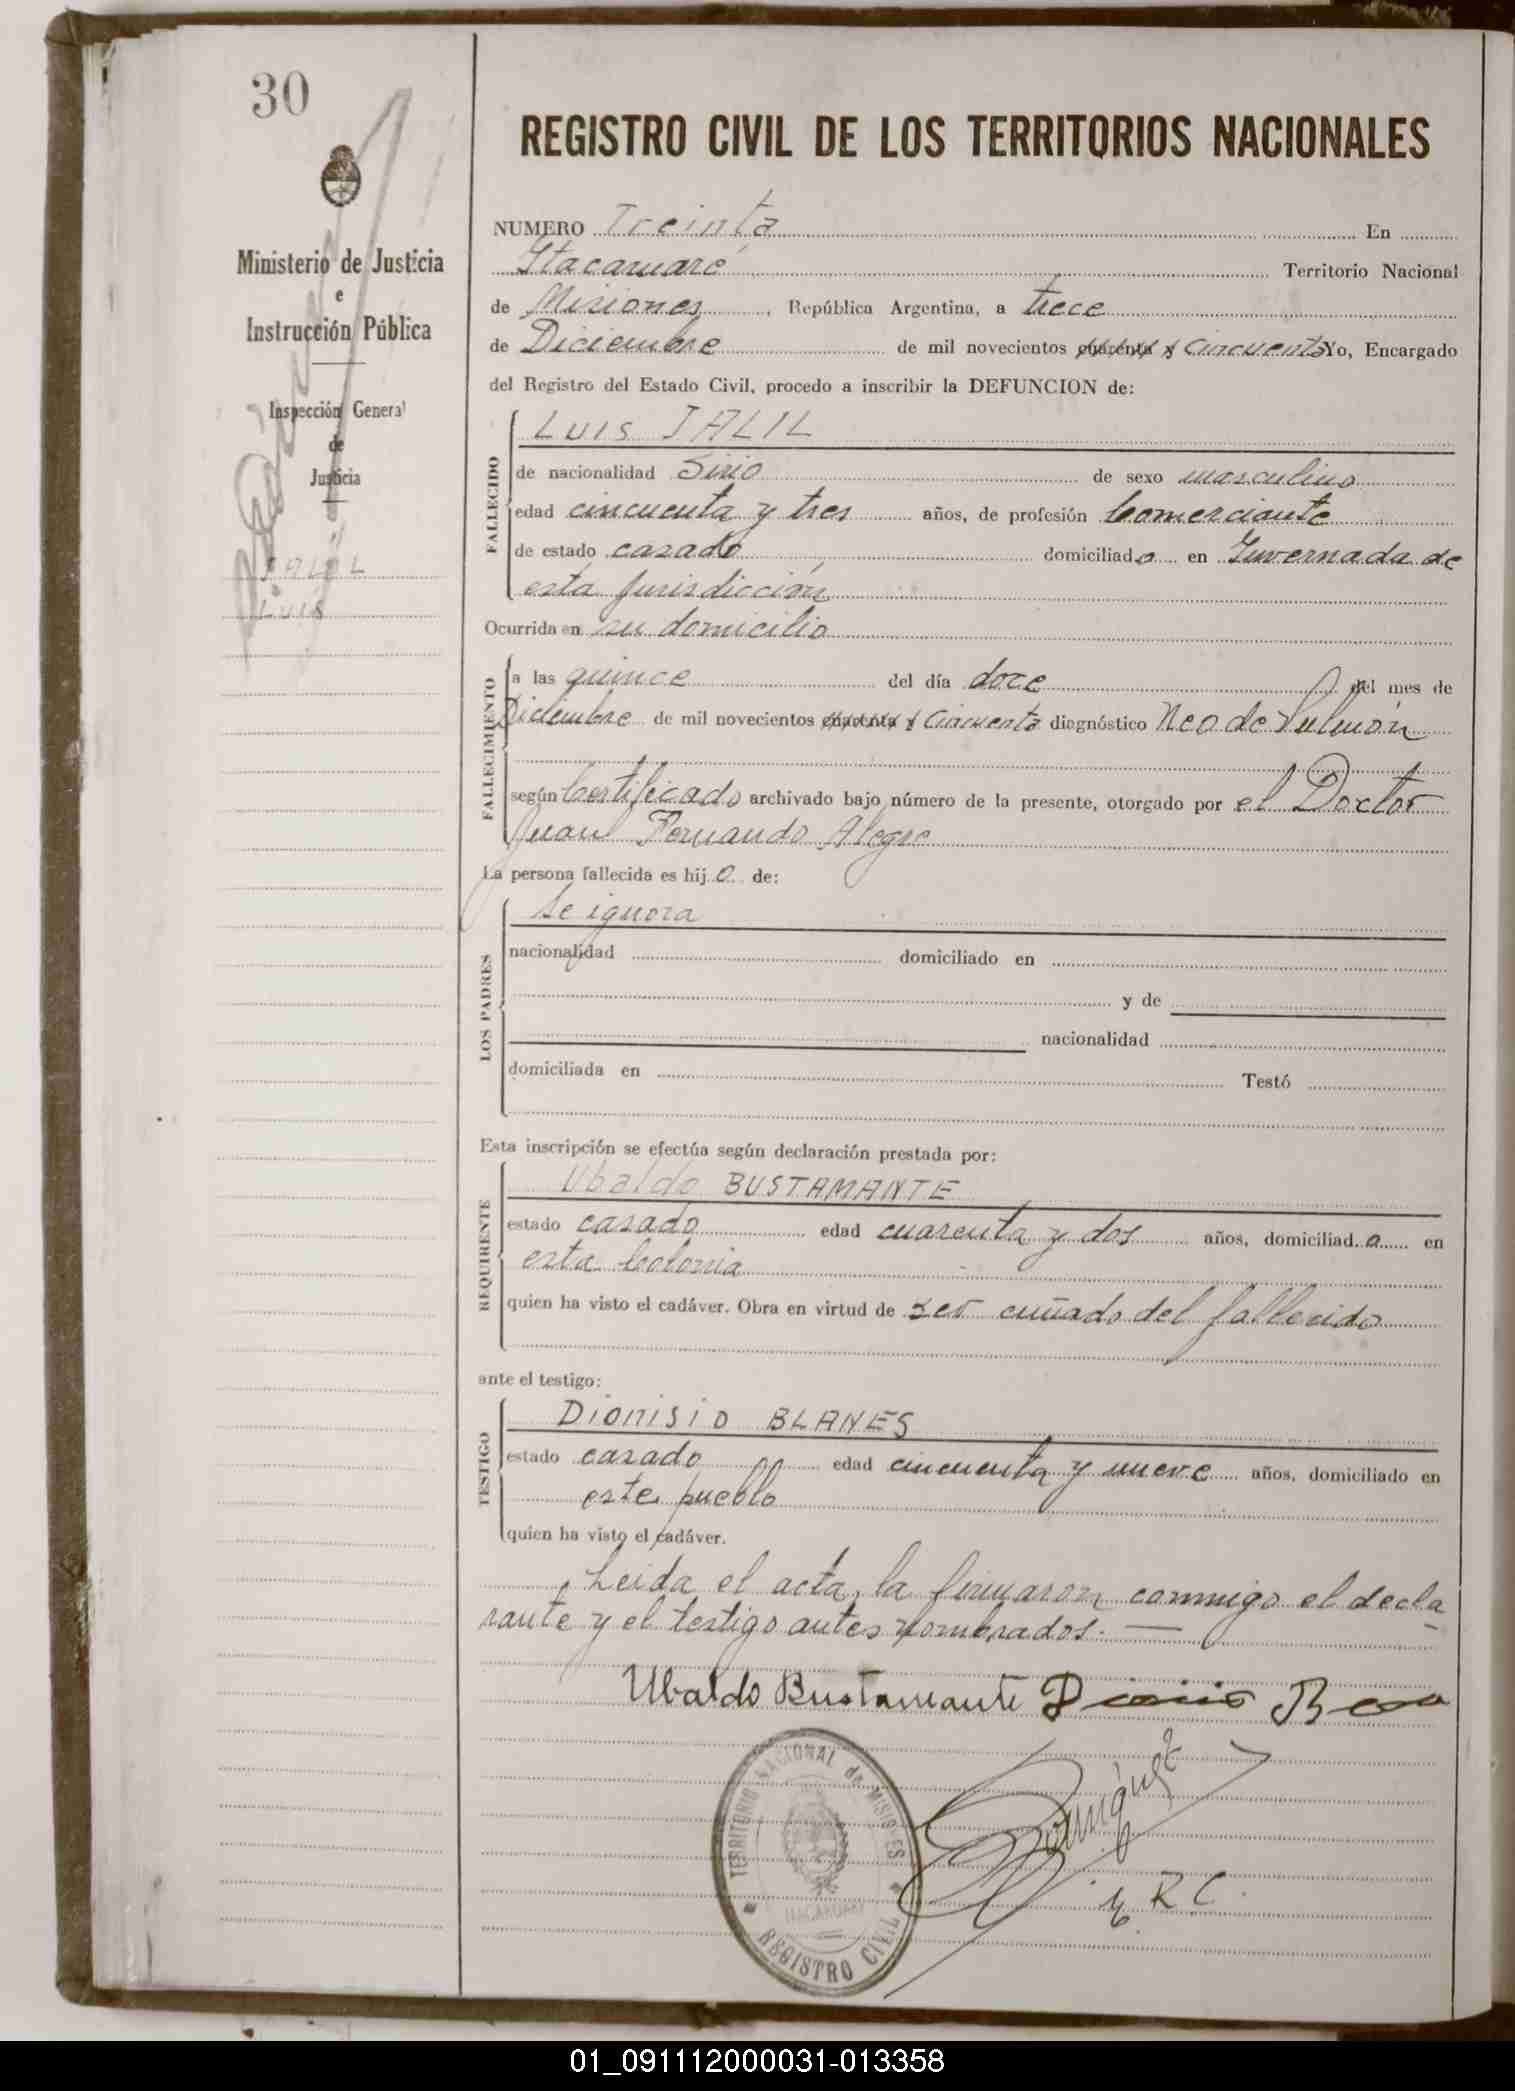 30
Ministerio de Justicia
e
Instrucción Pública
Inspección General
de
Justicia
JALIL
LUIS
REGISTRO CIVIL DE LOS TERRITORIOS NACIONALES
NUMERO Treinta En
Itacaruaré Territorio Nacional
de Misiones, República Argentina, a trece
de Diciembre de mil novecientos cuarenta y cincuenta Yo, Encargado
del Registro del Estado Civil, procedo a inscribir la DEFUNCION de:
FALLECIDO
LUIS JALIL
de nacionalidad Sirio de sexo masculino
edad cincuenta y tres años, de profesión Comerciante
de estado casado domiciliado en Invernada de
esta Jurisdicción
Ocurrida en su domicilio
FALLECIMIENTO
a las quince del día doce del mes de
Diciembre de mil novecientos cuarenta y cincuenta diagnóstico Neo de Pulmón
según Certificado archivado bajo número de la presente, otorgado por el Doctor
Juan Fernando Alegre
La persona fallecida es hijo de:
LOS PADRES
Se ignora
nacionalidad domiciliado en
y de
nacionalidad
domiciliada en Testó
Esta inscripción se efectúa según declaración prestada por:
REQUIRENTE
Ubaldo BUSTAMANTE
estado casado edad cuarenta y dos años, domiciliad a en
esta Colonia
quien ha visto el cadáver. Obra en virtud de ser cuñado del fallecido
ante el testigo:
TESTIGO
Dionisio BLANES
estado casado edad cincuenta y nueve años, domiciliado en
este pueblo
quien ha visto el cadáver.
Leida el acta, la firmaron conmigo el decla
rante y el testigo antes nombrados. —
Ubaldo Bustamante
TERRITORIO NACIONAL de MISIONES
REGISTRO CIVIL
R. C.
01_091112000031-013358